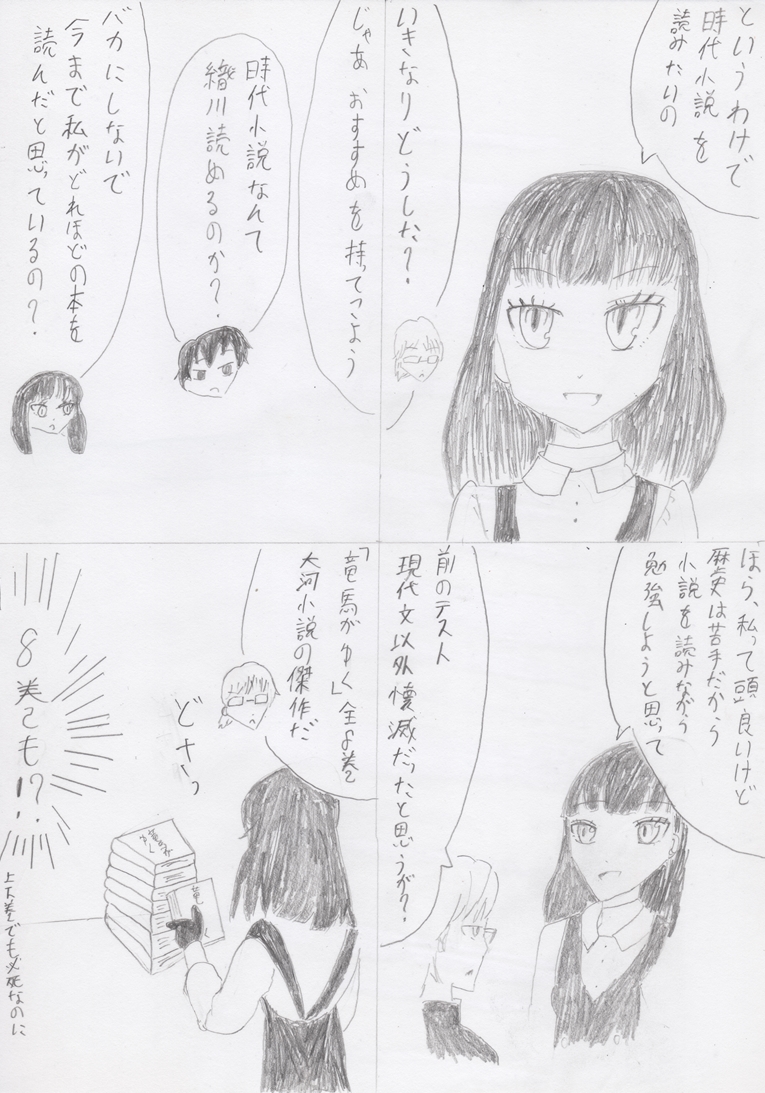 というわけで
時代小説を
読みたいの
いきなりどうした?
ほら、私って頭良いけど
歴史は苦手だから
小説を読みながら
勉強しようと思って
前のテスト
現代文以外壊滅だったと思うが?
じゃあおすすめを持ってこよう
時代小説なんて
織川読めるのか?
バカにしないで
今まで私がどれほどの本を
読んだと思っているの?
「竜馬がゆく」全8巻
大河小説の傑作だ
どさっ
竜馬が
ゆく
竜
く
8巻も!?
上下巻でも必死なのに